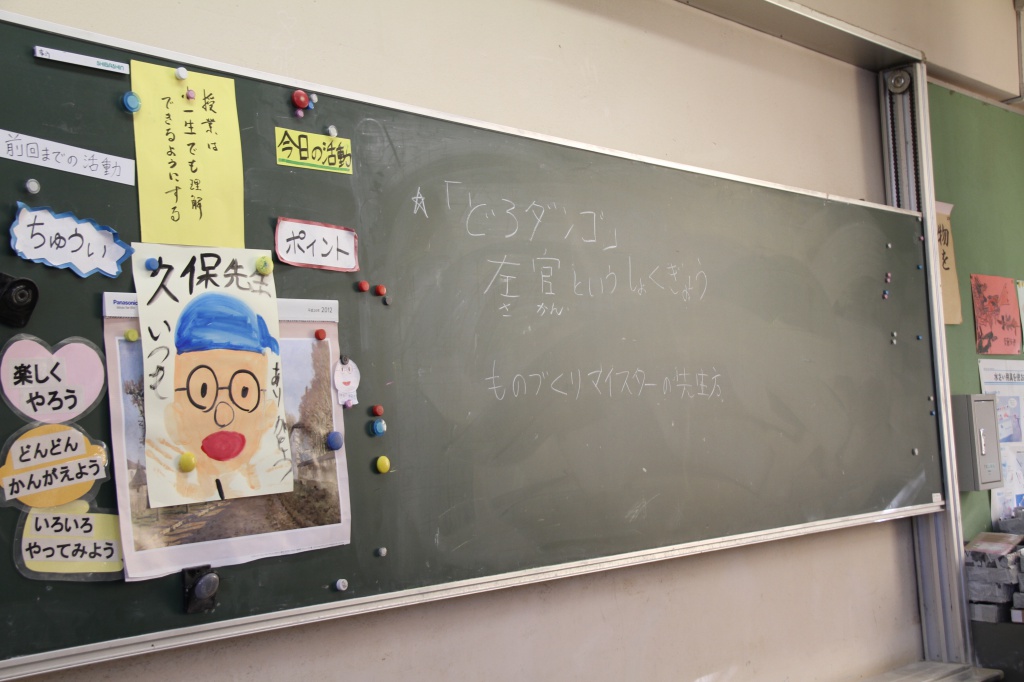 授業は
一生でも理解
できるようにする
前回までの活動
今日の活動
ちゅうい
ポイント
久保先生
いつも
あり
Panasonic
2012
楽しく
やろう
どんどん
かんがえよう
いろいろ
やってみよう
☆「どろダンゴ」
左官というしょくぎょう
さ かん
ものづくりマイスターの先生方
物を